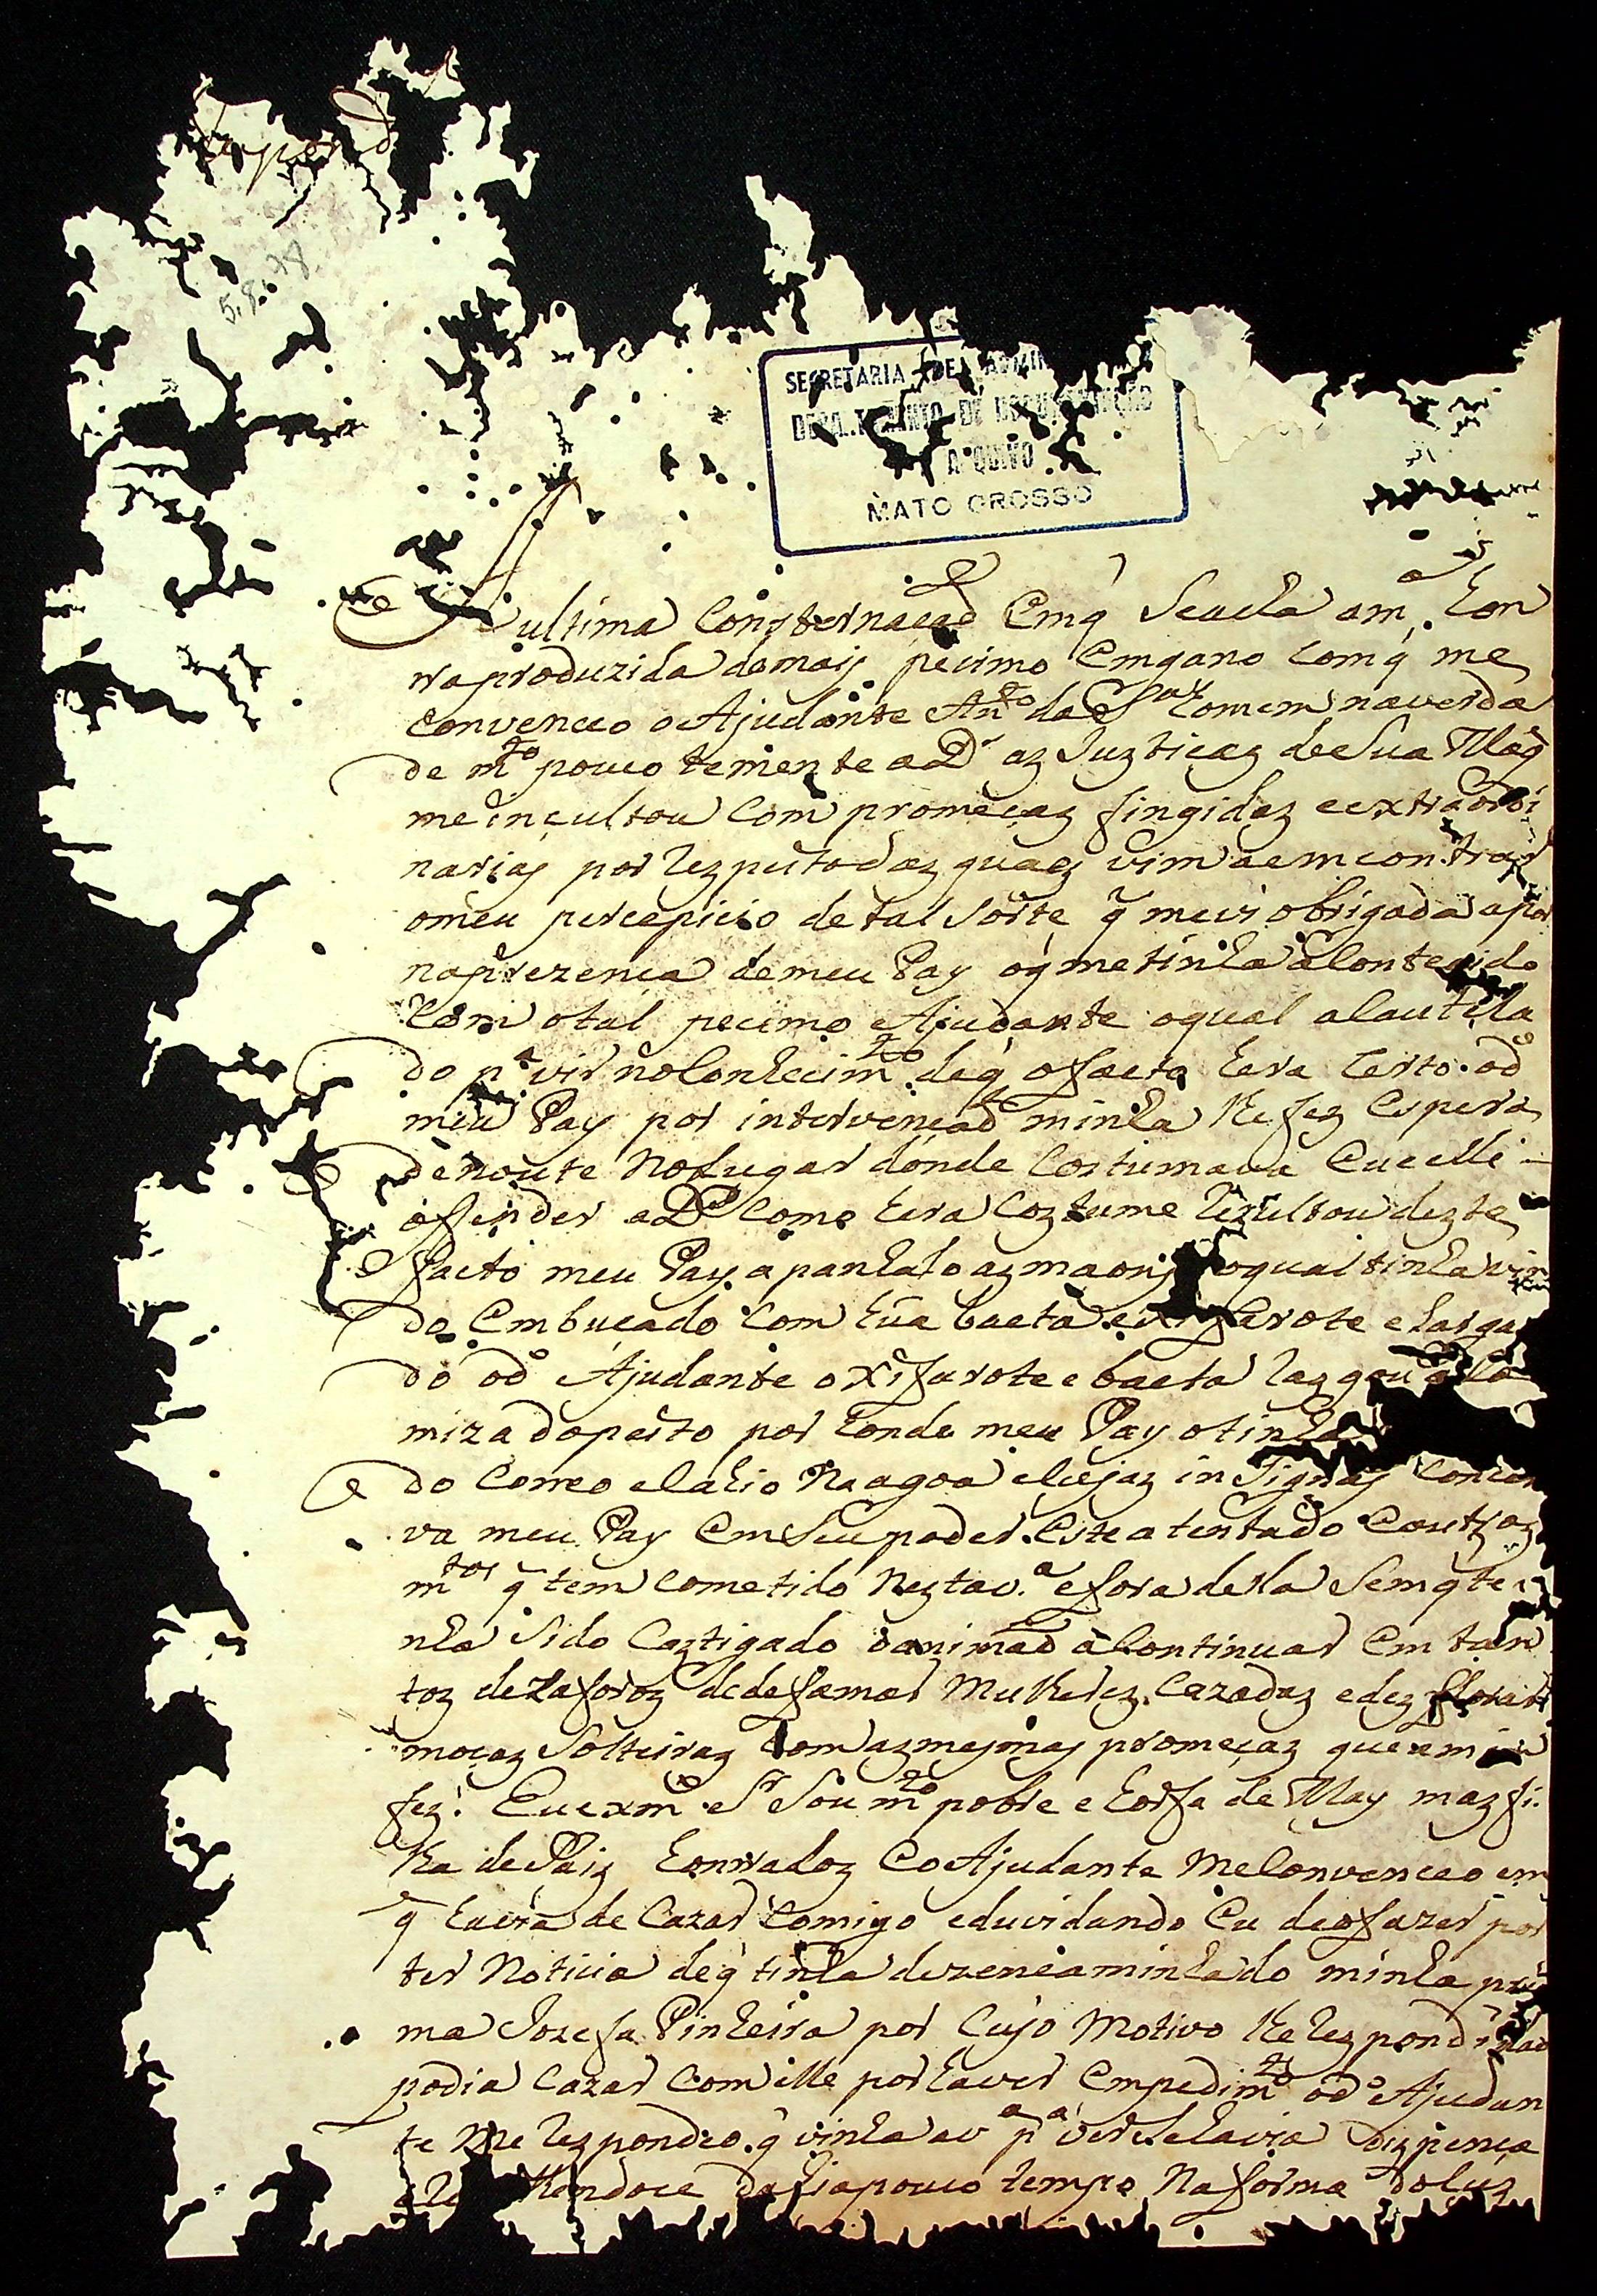 Respond
5.8.78
SECRETARIA DE ADMINI
DEPARTAMENTO DE DOCUMENTAÇÃO
ARQUIVO
MATO GROSSO
A ultima Consternaçaõ Emq̃ Seacha am.ª hon
rraproduzida demais pecimo Emgano Comq̃ me
convenceo oAjudante Antº da Sª homem naverda
de mtº pouco temente aDs az Justiçaz deSua Mag
meinçultou Com promeçaz fingidaz eextraordi
narias por Rezpeito daz quaez vim aemcontrar
omeu percepicio detal sorte q̃ mevi obrigada apor
naprezença demeu Pay oq̃ metinha aContecido
Com otal pecimo Ajudante oqual aCautela
do pª vir noConhecimtº deq̃ ofacto hera Certo. odº
meu Pay por intervençaõ minha lhefez Espera
denoute NoLugar donde Costumava Euelle
ofender aDs Como hera Coztume Rezultou dezte
facto meu Pay apanhalo azmaons oqual tinha vin
do Embuçado Com hũa baeta exifarote elarga
do odº Ajudante oxifarote ebaeta Razgou aCa
miza dopeito por honde meu Pay otinha
do Correo eCahio Naagoa eCujaz inSignias Concer
va meu Pay EmSeupoder. Este atentado Eoutroz
mtos q̃ tem Cometido Neztav.ª efora della Semq̃te
nha Sido Caztigado oanimaõ aContinuar Em tan
toz dezaforoz dedefamar Mulherez Cazadaz edez florar
moçaz Solteiraz Com azmesmas promeçaz queamim
fez. Euexmº Sr Sou mtº pobre e horfã de May maz fi
lha dePaiz honrradoz EoAjudante MeConvenceo em
q̃ havia de Cazar Comigo eduvidando Eu deofazer por
ter Noticia deq̃ tinha dezencaminhado minha pri
ma Jozefa Pinheira por Cujo Motivo lheRezpondi naõ
podia Cazar Comelle porhaver Empedimtº odº Ajudan
te MeRezpondeo. q̃ vinha av.ª pª verSehavia Dizpença
Mendoce dahiapouco tempo Naforma doCuz